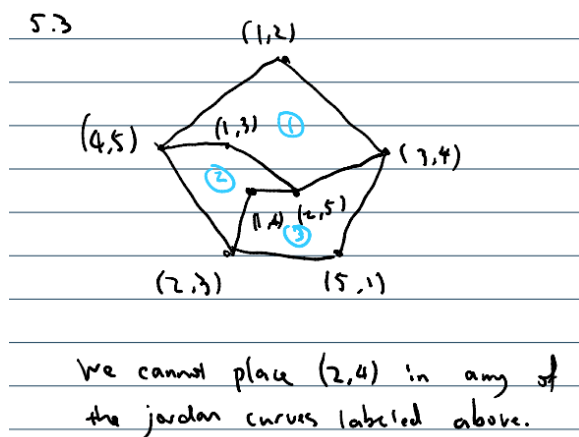 5.3
(1,2)
①
(1,3)
(4,5)
(3,4)
②
(1,4) (2,5)
③
(2,3) (5,1)
We cannot place (2,4) in any of
the jordan curves labeled above.